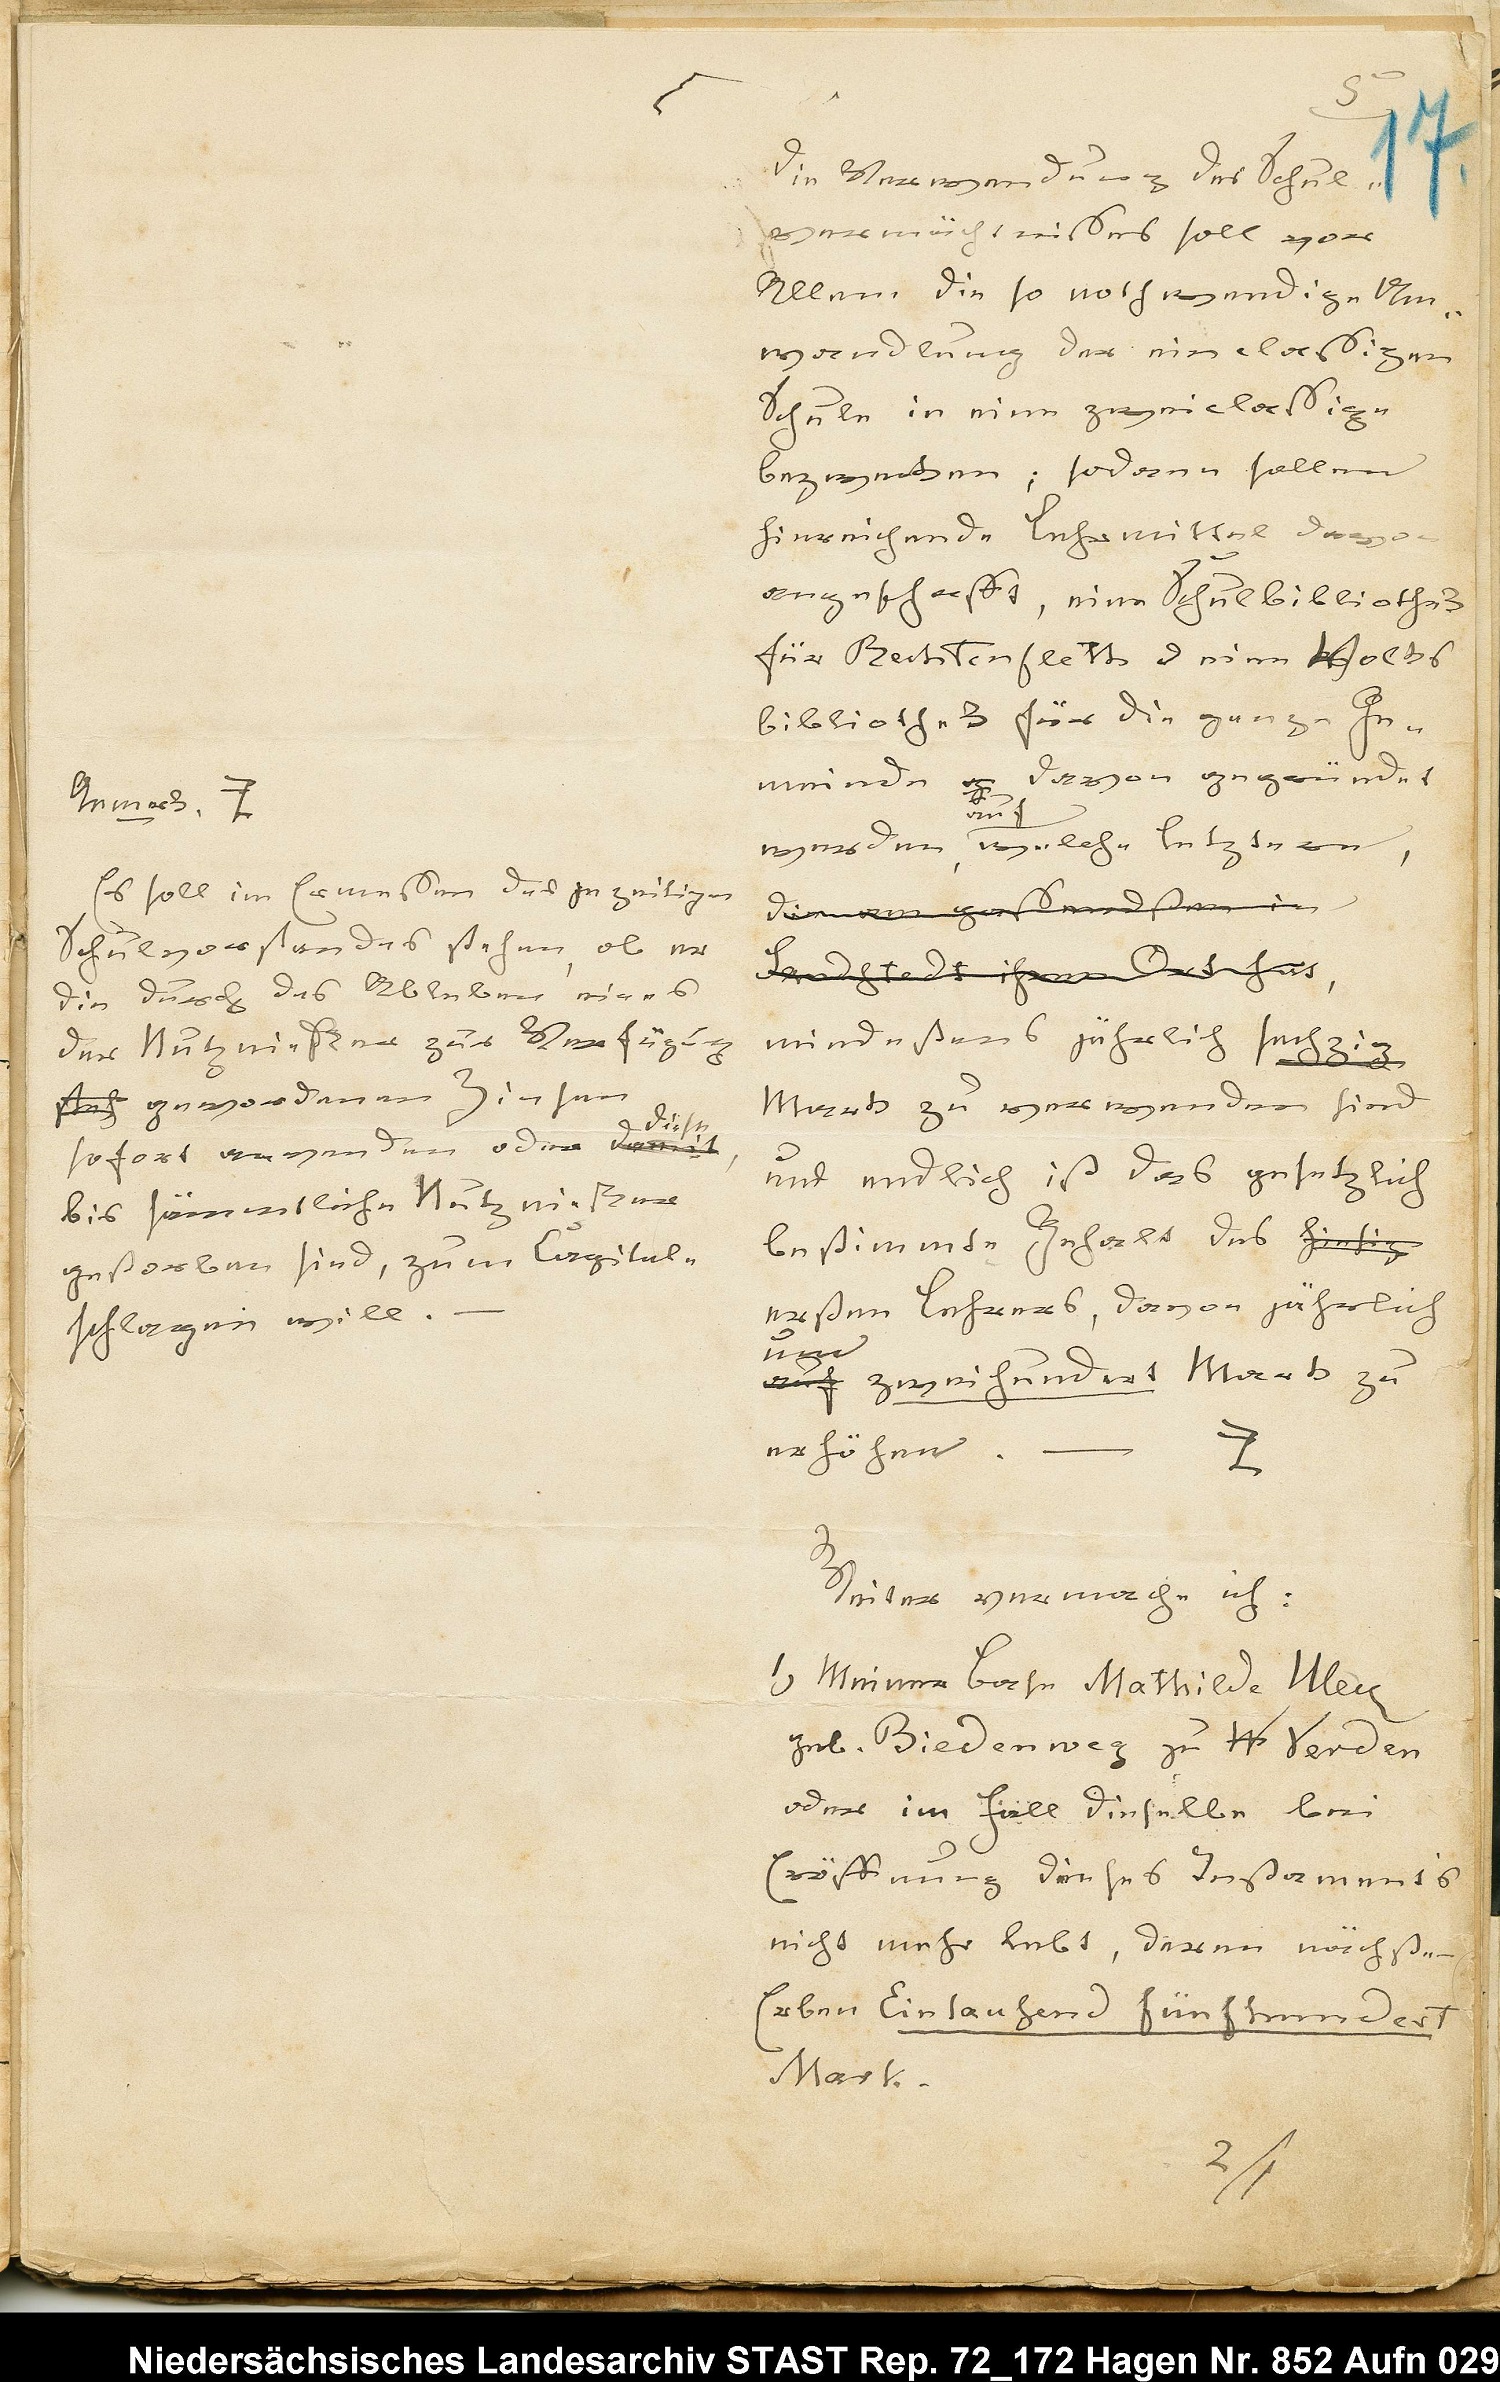 5
17.
Die Verwendung des Schul-
vermächtnisses soll vor
Allem die so nothwendige Um-
wandlung der einclassigen
Schule in eine zweiclassige
bezwecken; sodann sollen
hinreichende Lehrmittel davon
angeschafft, eine Schulbibliothek
für Rechtenfleth & eine Volks
bibliothek für die ganze Ge-
meinde davon gegründet
auf
werden, welche letztere,
die am passendsten in
ihren Ort hat,
mindestens jährlich sechzig
Mark zu verwenden sind
und endlich ist das gesetzlich
bestimmte Gehalt des hiesig
ersten Lehrers, davon jährlich
um
auf zweihundert Mark zu
erhöhen. —
Anmerk.
Es soll im Ermessen des jezeitigen
Schulvorstandes stehen, ob er
die durch das Ableben eines
der Nutznießer zur Verfügung
gewordenen Zinsen
diese
sofort anwenden oder damit,
bis sämmtliche Nutznießer
gestorben sind, zum Capitale
schlagen will. —
Weiter vermache ich:
1) Meiner Base Mathilde
geb. Biedenweg zu W Verden
oder im Fall dieselbe bei
Eröffnung dieses Testaments
nicht mehr lebt, deren nächsten
Erben Eintausend fünfhundert
Mark.
2/1
Niedersächsisches Landesarchiv STAST Rep. 72_172 Hagen Nr. 852 Aufn 029